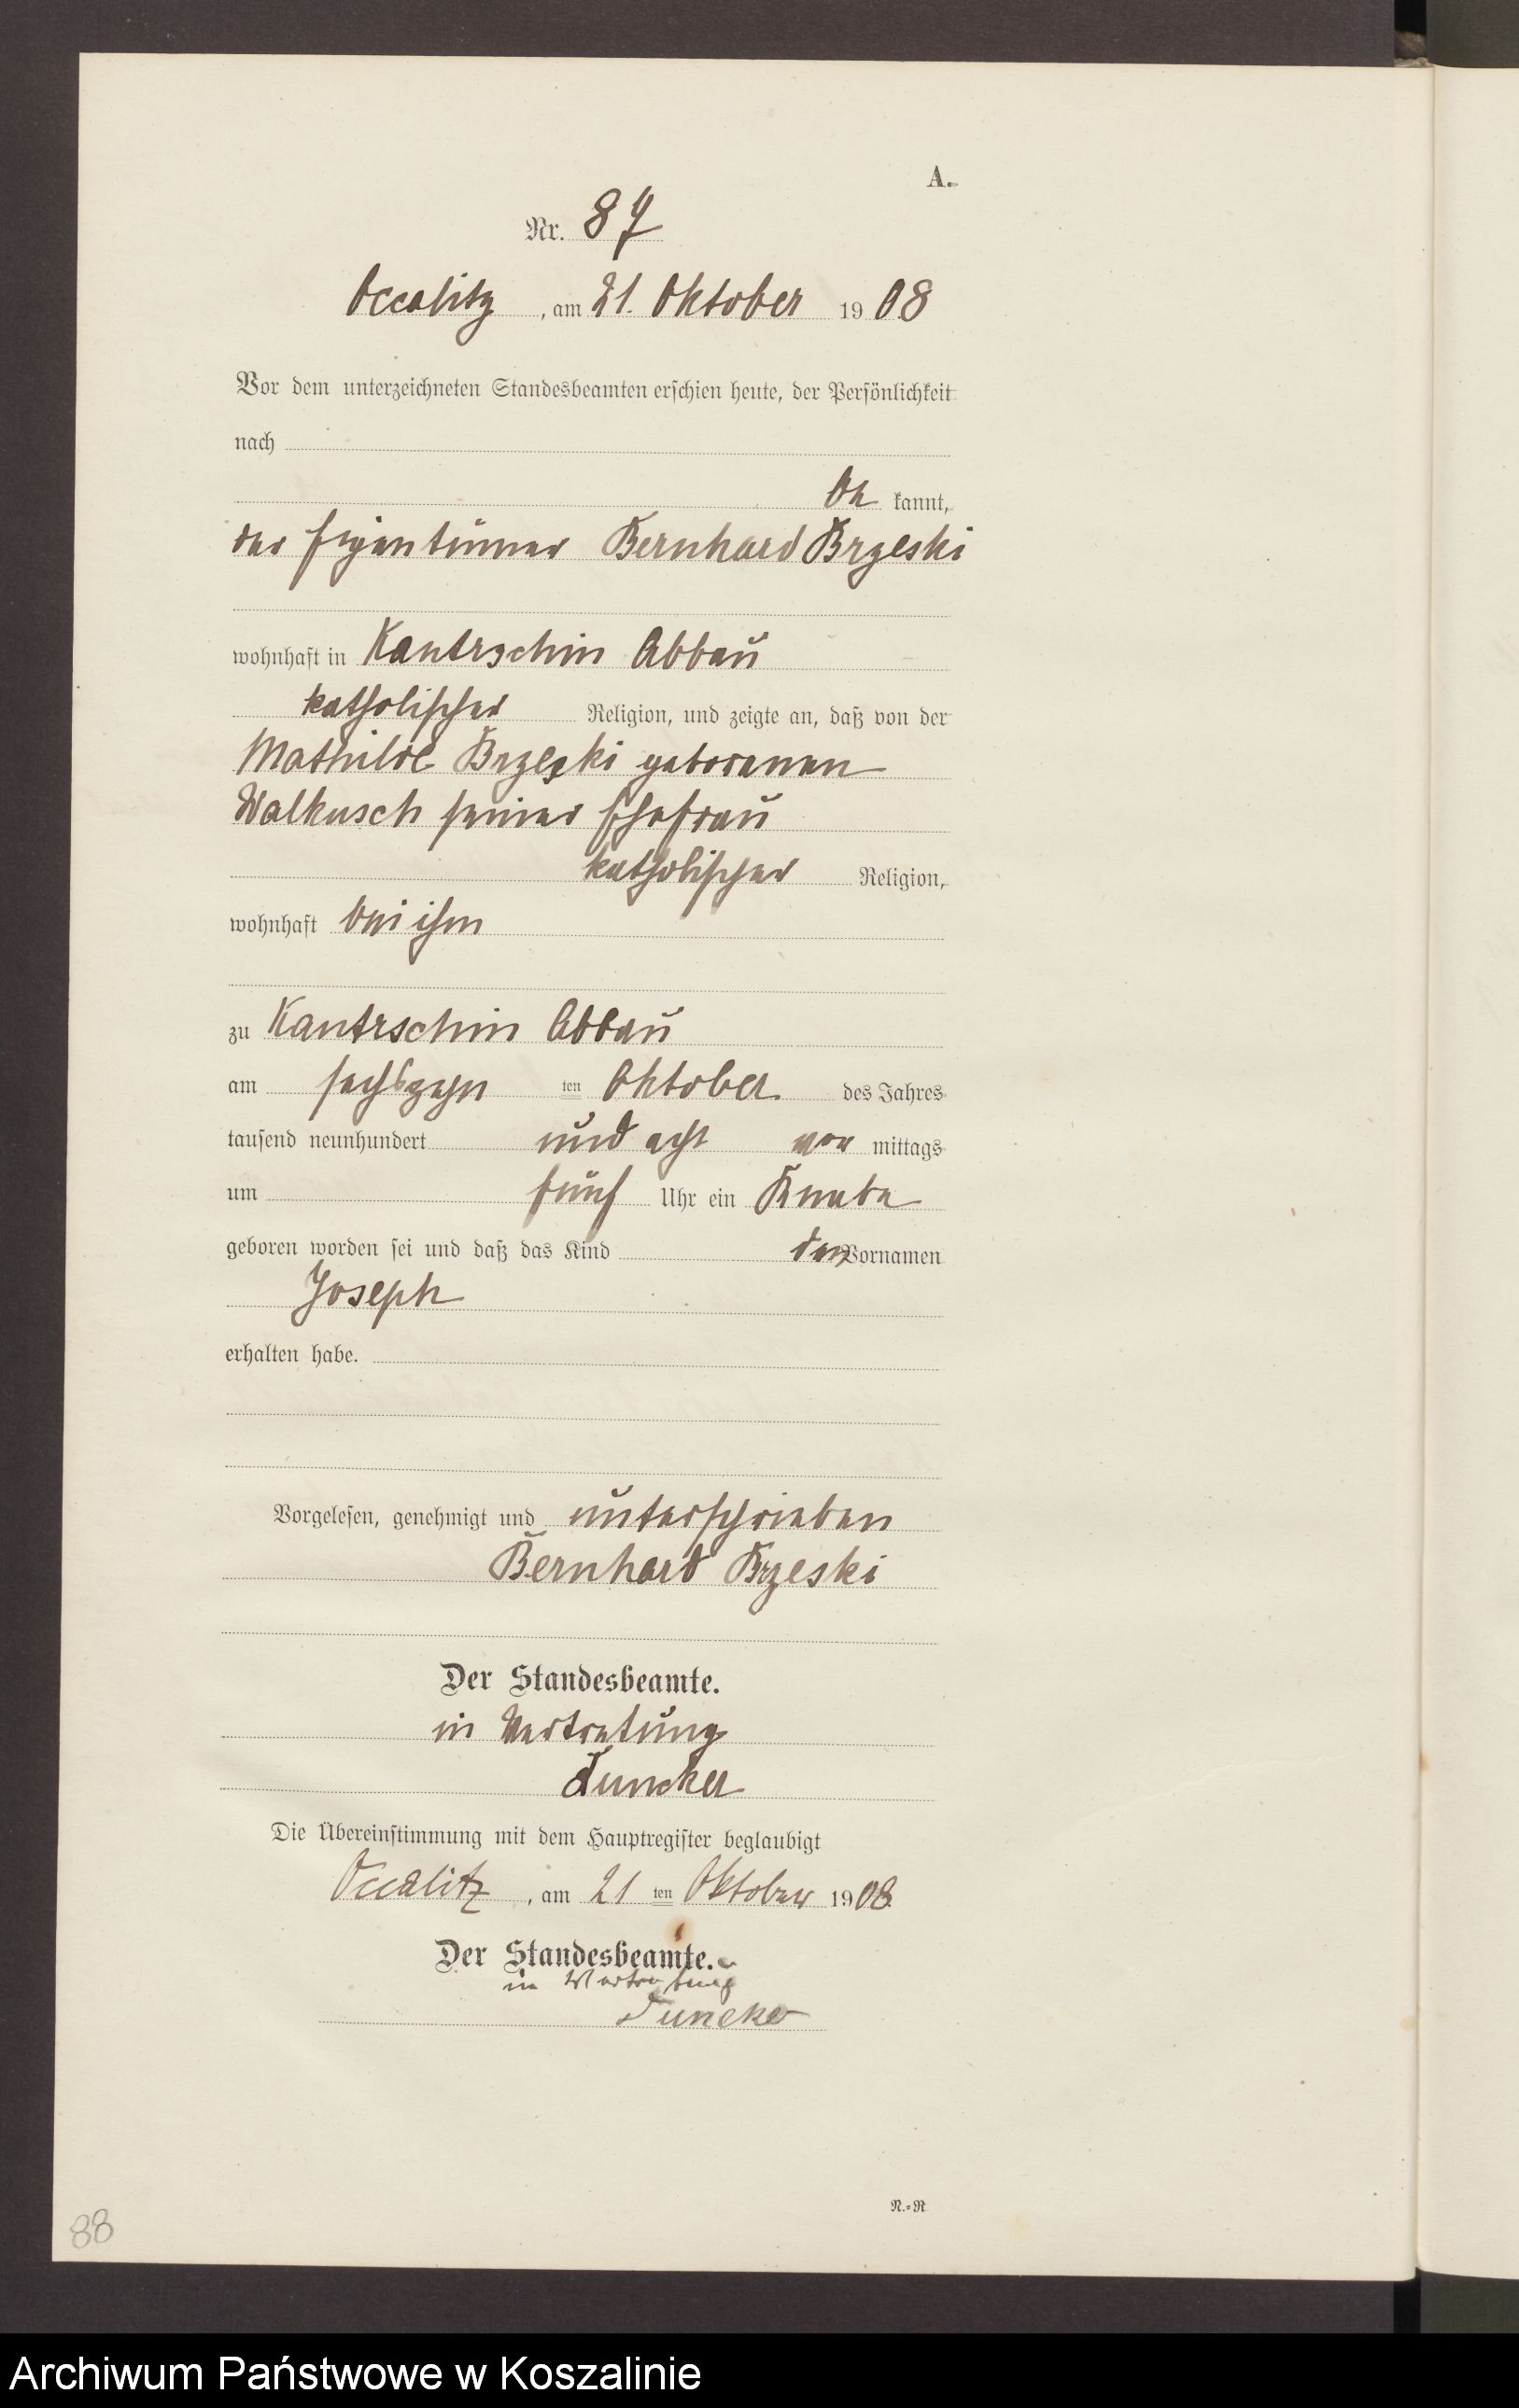 A.
Nr. 87
Occalitz, am 21. Oktober 1908
Vor dem unterzeichneten Standesbeamten erschien heute, der Persönlichkeit
nach
be kannt,
der Eigentümer Bernhard Brzeski
wohnhaft in Kantrschin Abbau
katholischer Religion, und zeigte an, daß von der
Mathilde Brzeski geborenen
Walkusch seiner Ehefrau
katholischer Religion,
wohnhaft bei ihm
zu Kantrschin Abbau
am sechszehn ten Oktober des Jahres
tausend neunhundert und acht vor mittags
um fünf Uhr ein Knabe
geboren worden sei und daß das Kind den Vornamen
Joseph
erhalten habe.
Vorgelesen, genehmigt und unterschrieben
Bernhard Brzeski
Der Standesbeamte.
in Vertretung
Duncker
Die Übereinstimmung mit dem Hauptregister beglaubigt
Occalitz, am 21 ten Oktober 1908.
Der Standesbeamte.
in Vertretung
Duncker
N.=R
88
Archiwum Państwowe w Koszalinie